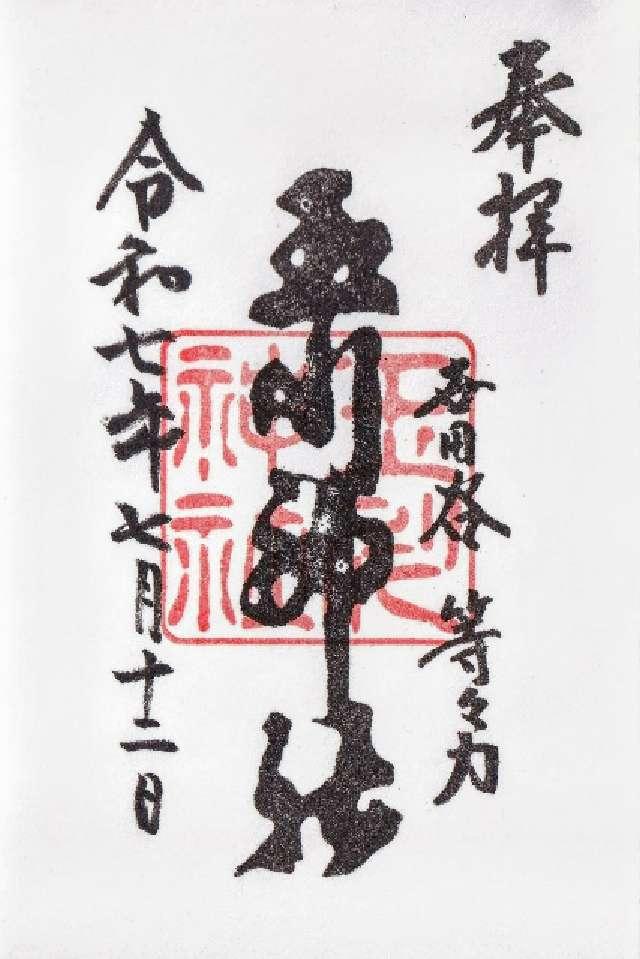 奉拝
世田谷 等々力
玉川神社
神社
令和七年七月十二日